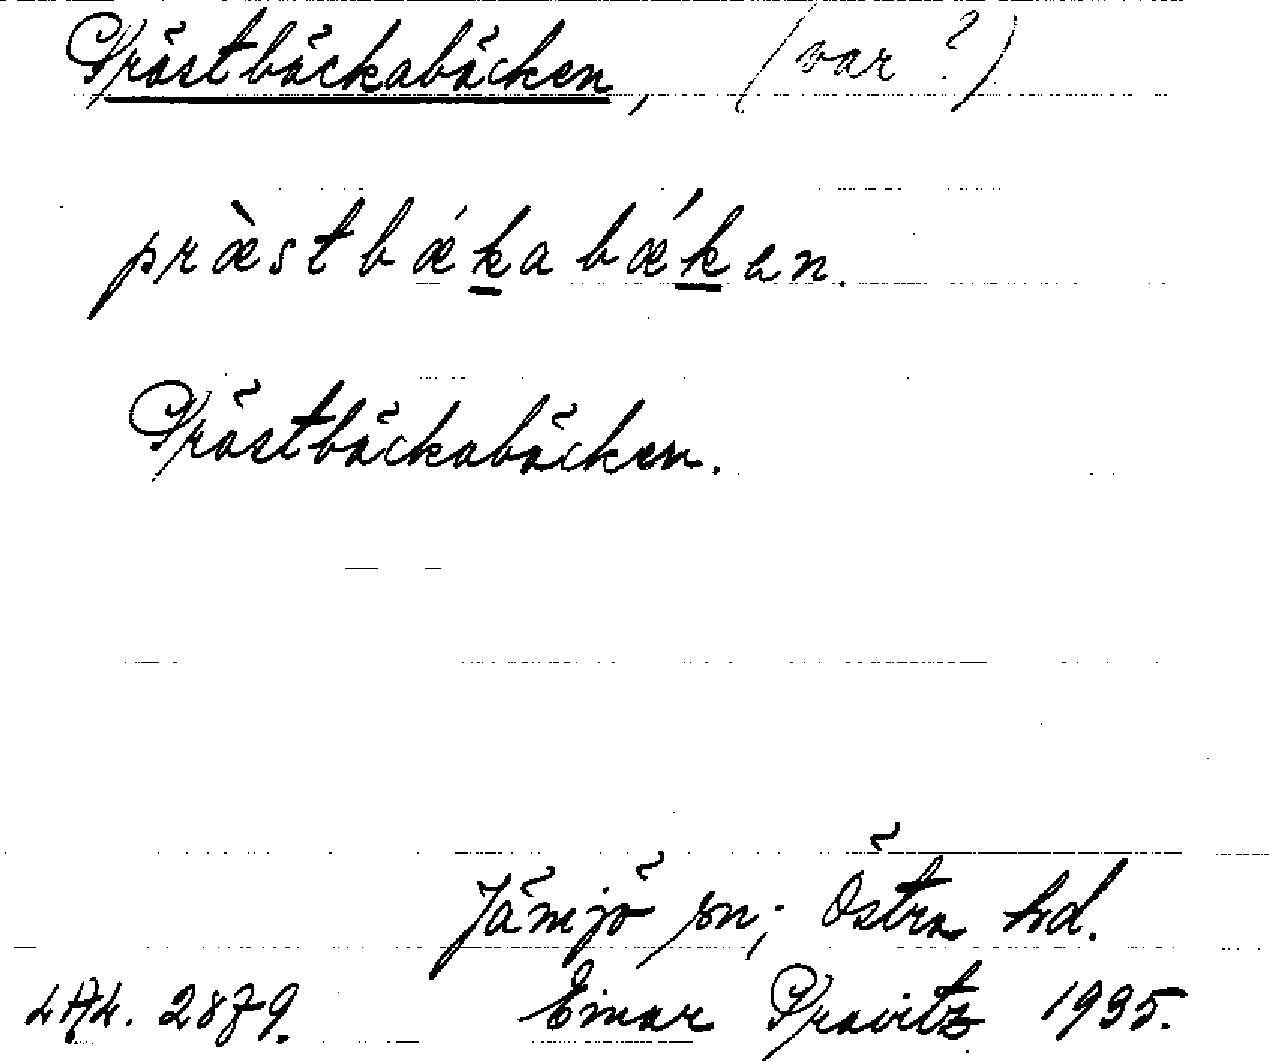 Prästbäckabäcken, (var ?)
præ̀stbækabǽkən.
Prästbäckabäcken.
Jämjö sn; Östra hd.
LAL. 2879. Einar Pravitz 1935.